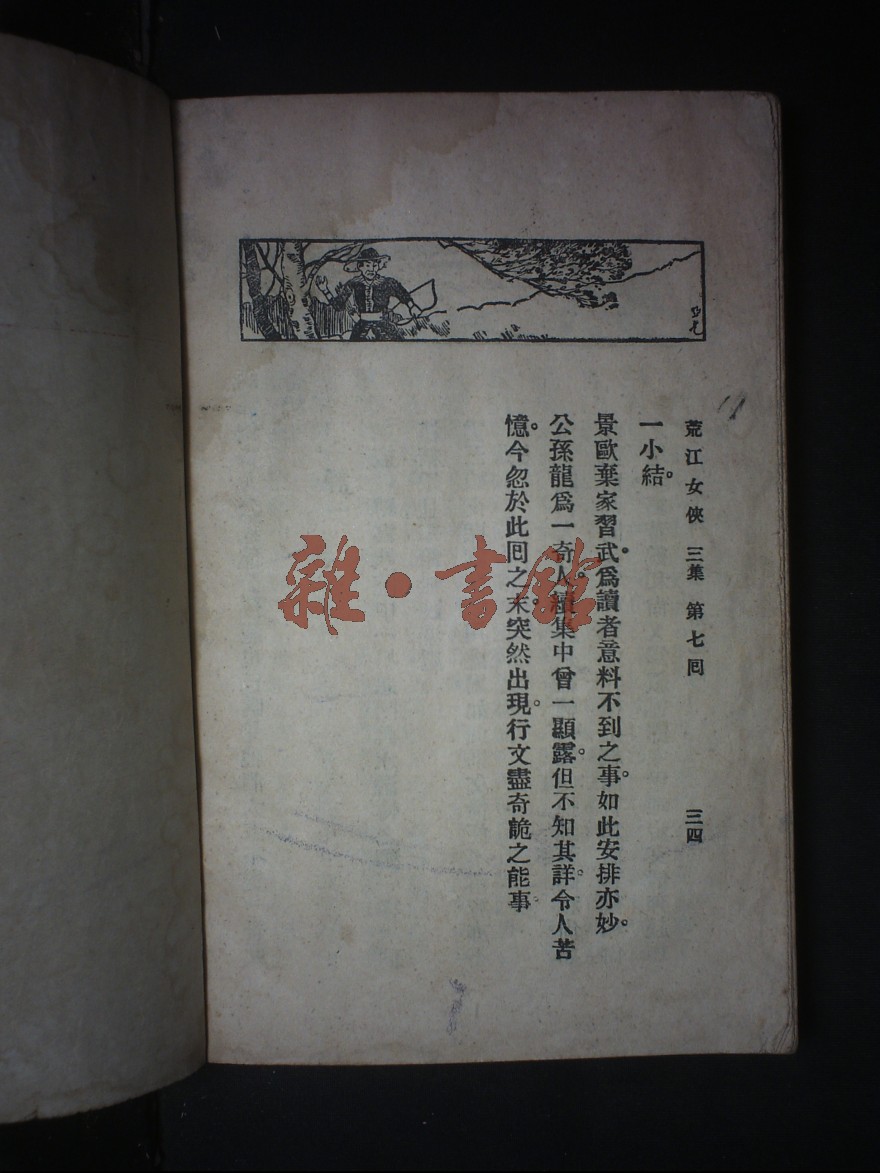 荒江女俠 三集 第七囘 三四
一小結。
景歐棄家習武。爲讀者意料不到之事。如此安排亦妙。
公孫龍爲一奇人。續集中曾一顯露。但不知其詳。令人苦
憶。今忽於此囘之末。突然出現。行文盡奇詭之能事。
雜·書館